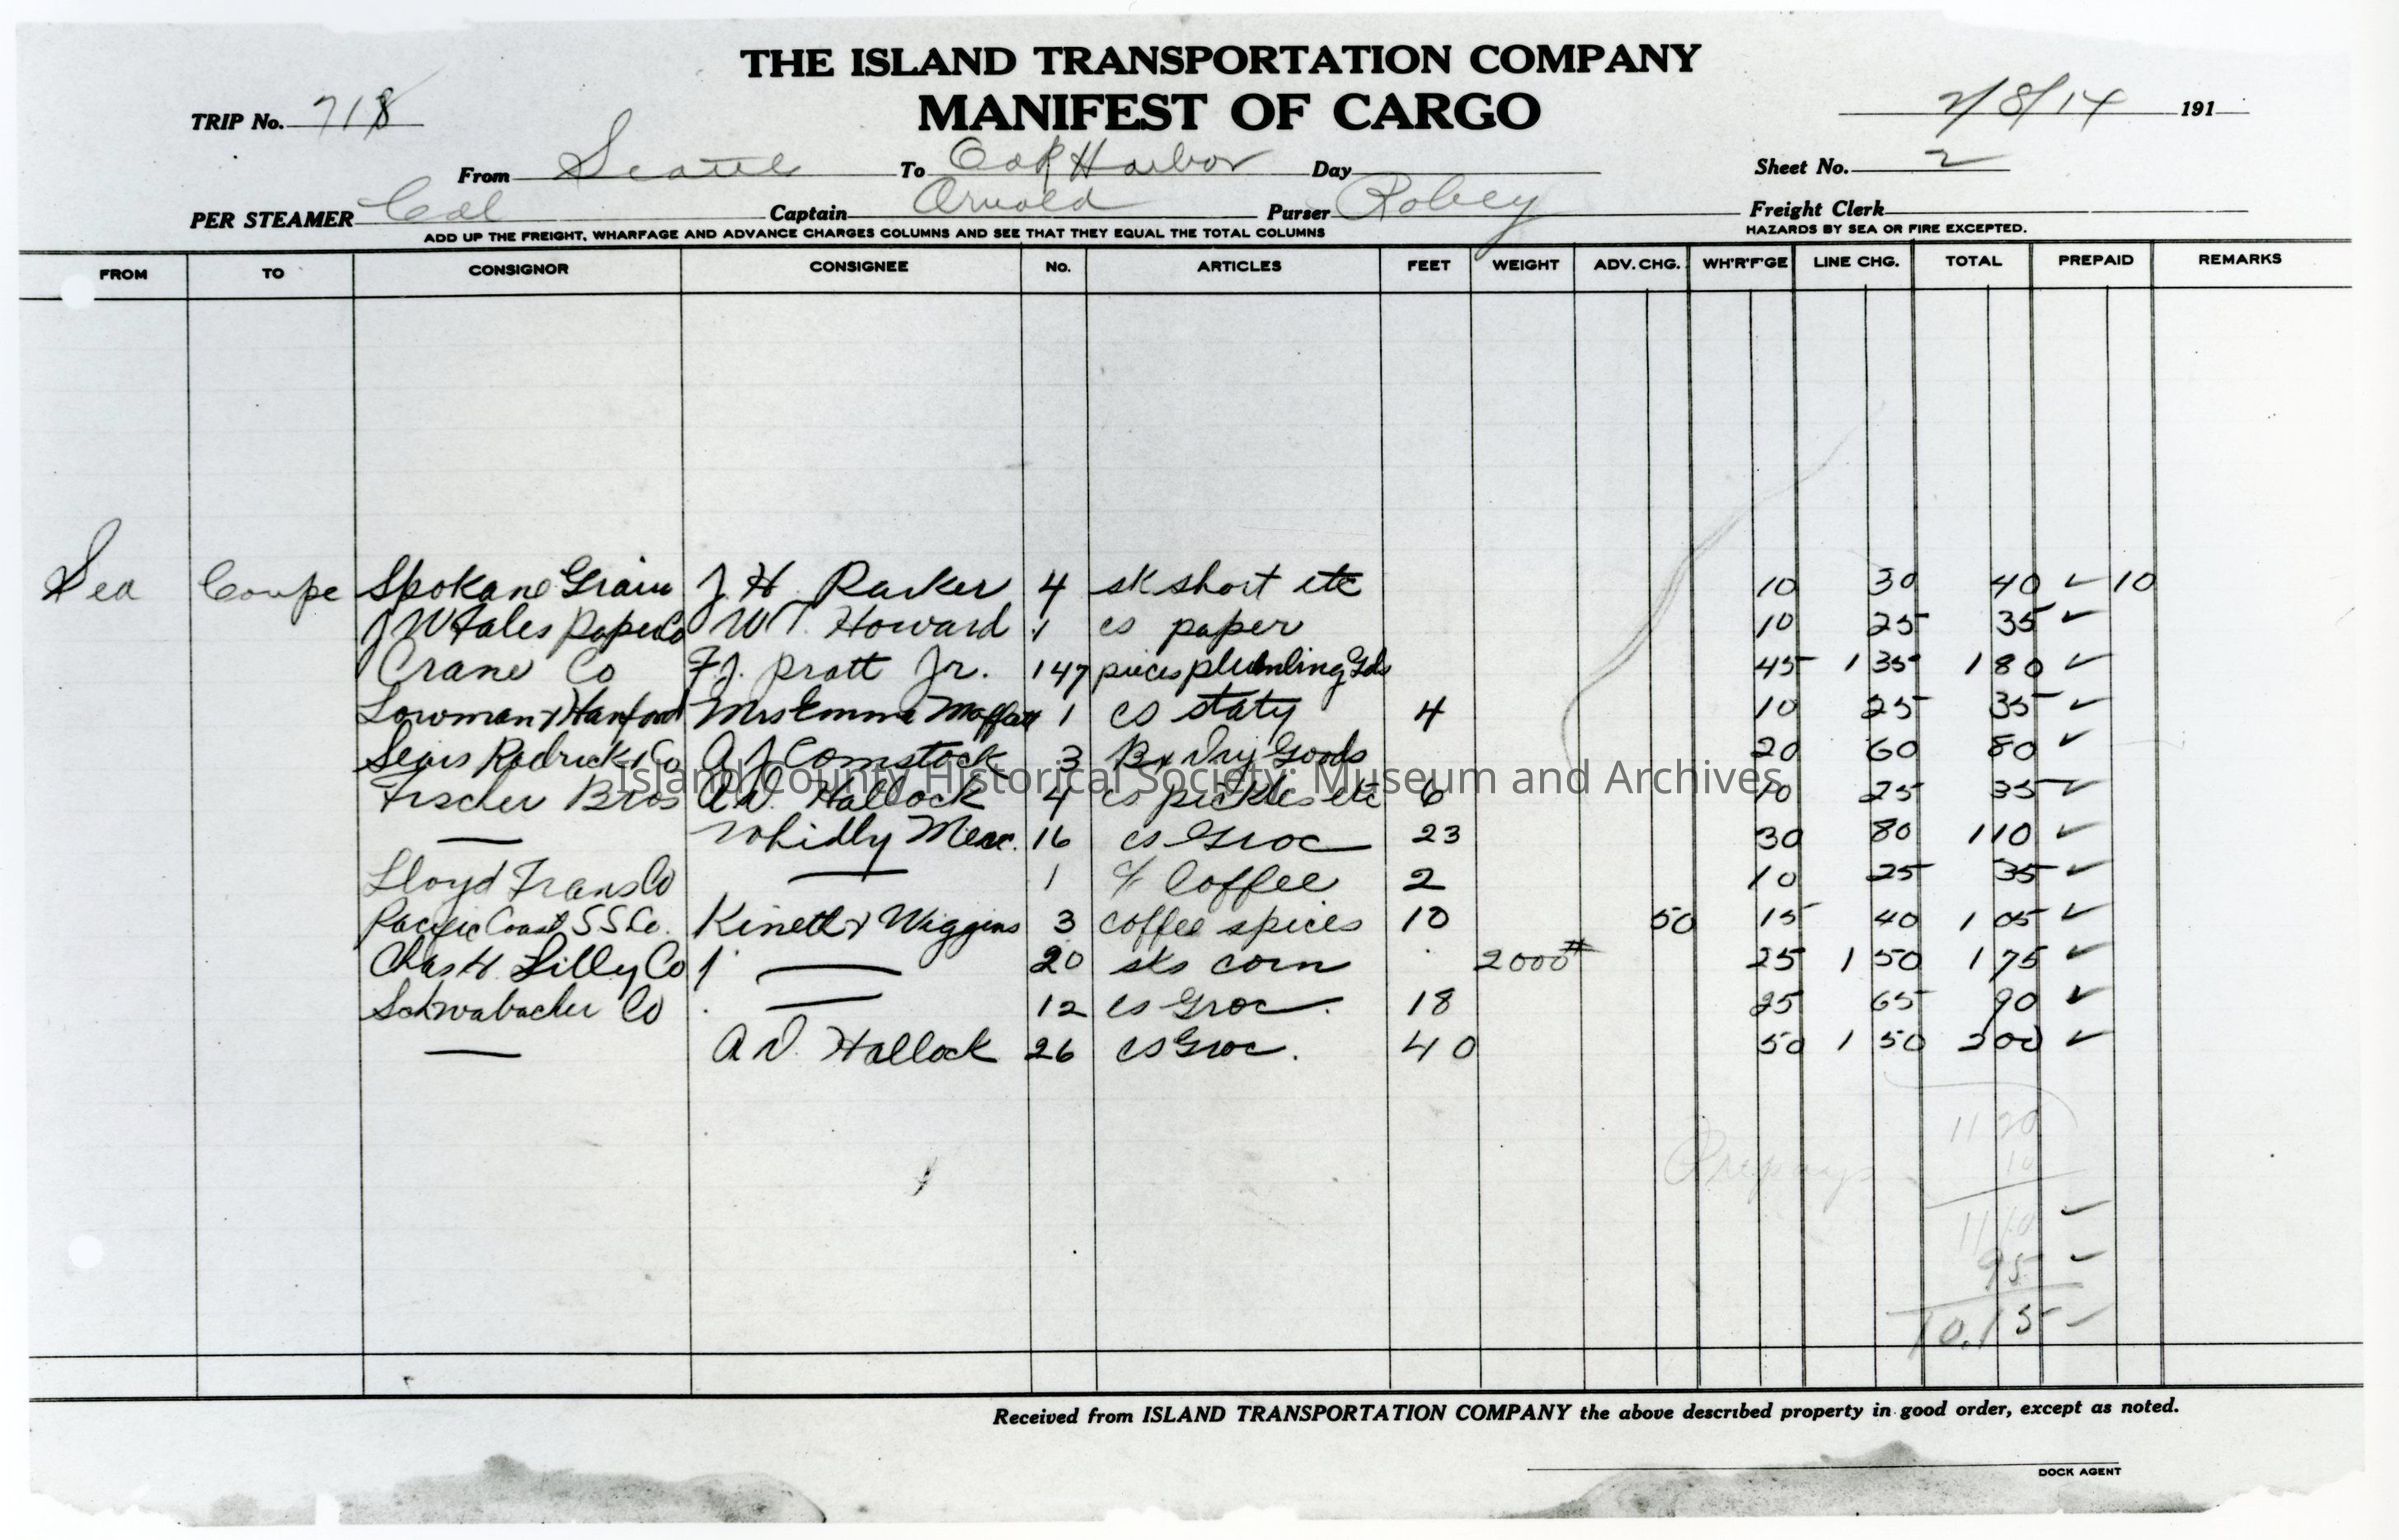 THE ISLAND TRANSPORTATION COMPANY
MANIFEST OF CARGO
TRIP No. 718
2/8/14 191
From Seattle To Oak Harbor Day
Sheet No. 2
PER STEAMER Cal Captain Arnold Purser Robey
Freight Clerk
ADD UP THE FREIGHT, WHARFAGE AND ADVANCE CHARGES COLUMNS AND SEE THAT THEY EQUAL THE TOTAL COLUMNS
HAZARDS BY SEA OR FIRE EXCEPTED.
FROM TO CONSIGNOR CONSIGNEE No. ARTICLES FEET WEIGHT ADV. CHG. WH'R'F'GE LINE CHG. TOTAL PREPAID REMARKS
Sea Coupe Spokane Grain J. H. Parker 4 sk short etc 10 30 40 ✓ 10
J W Fales Paper Co W T. Howard 1 cs paper 10 25 35 ✓
Crane Co F. J. Pratt Jr. 147 pieces plumbing Gds 45 1 35 1 80 ✓
Lowman & Hanford Mrs Emma Moffatt 1 cs staty 4 10 25 35 ✓
Sears Rodrick & Co A J Comstock 3 Bx Dry Goods 20 60 80 ✓
Fischer Bros A D. Hallock 4 cs pickles etc 6 10 25 35 ✓
— Whidby Merc. 16 cs Groc 23 30 80 1 10 ✓
Lloyd Trans Co — 1 Coffee 2 10 25 35 ✓
Pacific Coast S S Co. Kineth & Wiggins 3 coffee spices 10 50 15 40 1 05 ✓
Chas H. Lilly Co — 20 sks corn 2000# 25 1 50 1 75 ✓
Schwabacher Co — 12 cs Groc. 18 25 65 90 ✓
— A D. Hallock 26 cs Groc. 40 50 1 50 2 00 ✓
11 20
Prepays 10
11 10 ✓
95 ✓
10.15 ✓
Island County Historical Society: Museum and Archives
Received from ISLAND TRANSPORTATION COMPANY the above described property in good order, except as noted.
DOCK AGENT